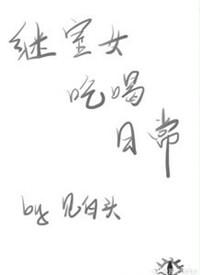 继室女
吃喝
日常
by 见白头